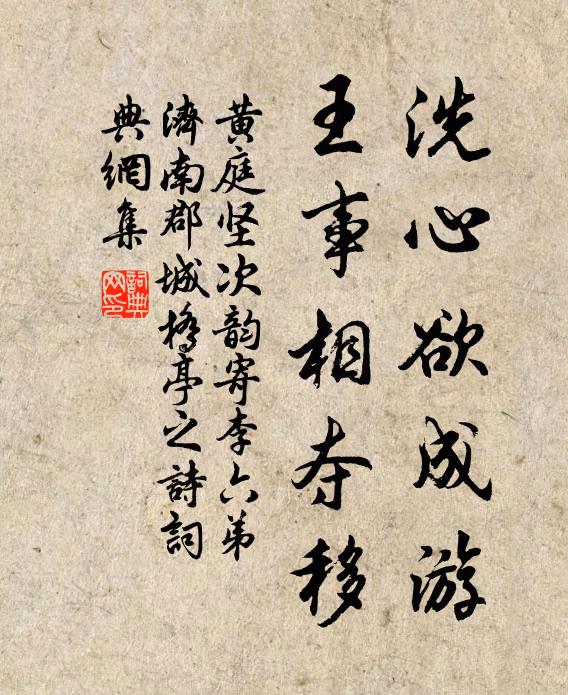 洗心欲成游
王事相夺移
黄庭坚次韵寄李六弟
濟南郡城橋亭之詩詞
典網集
詞典
网印